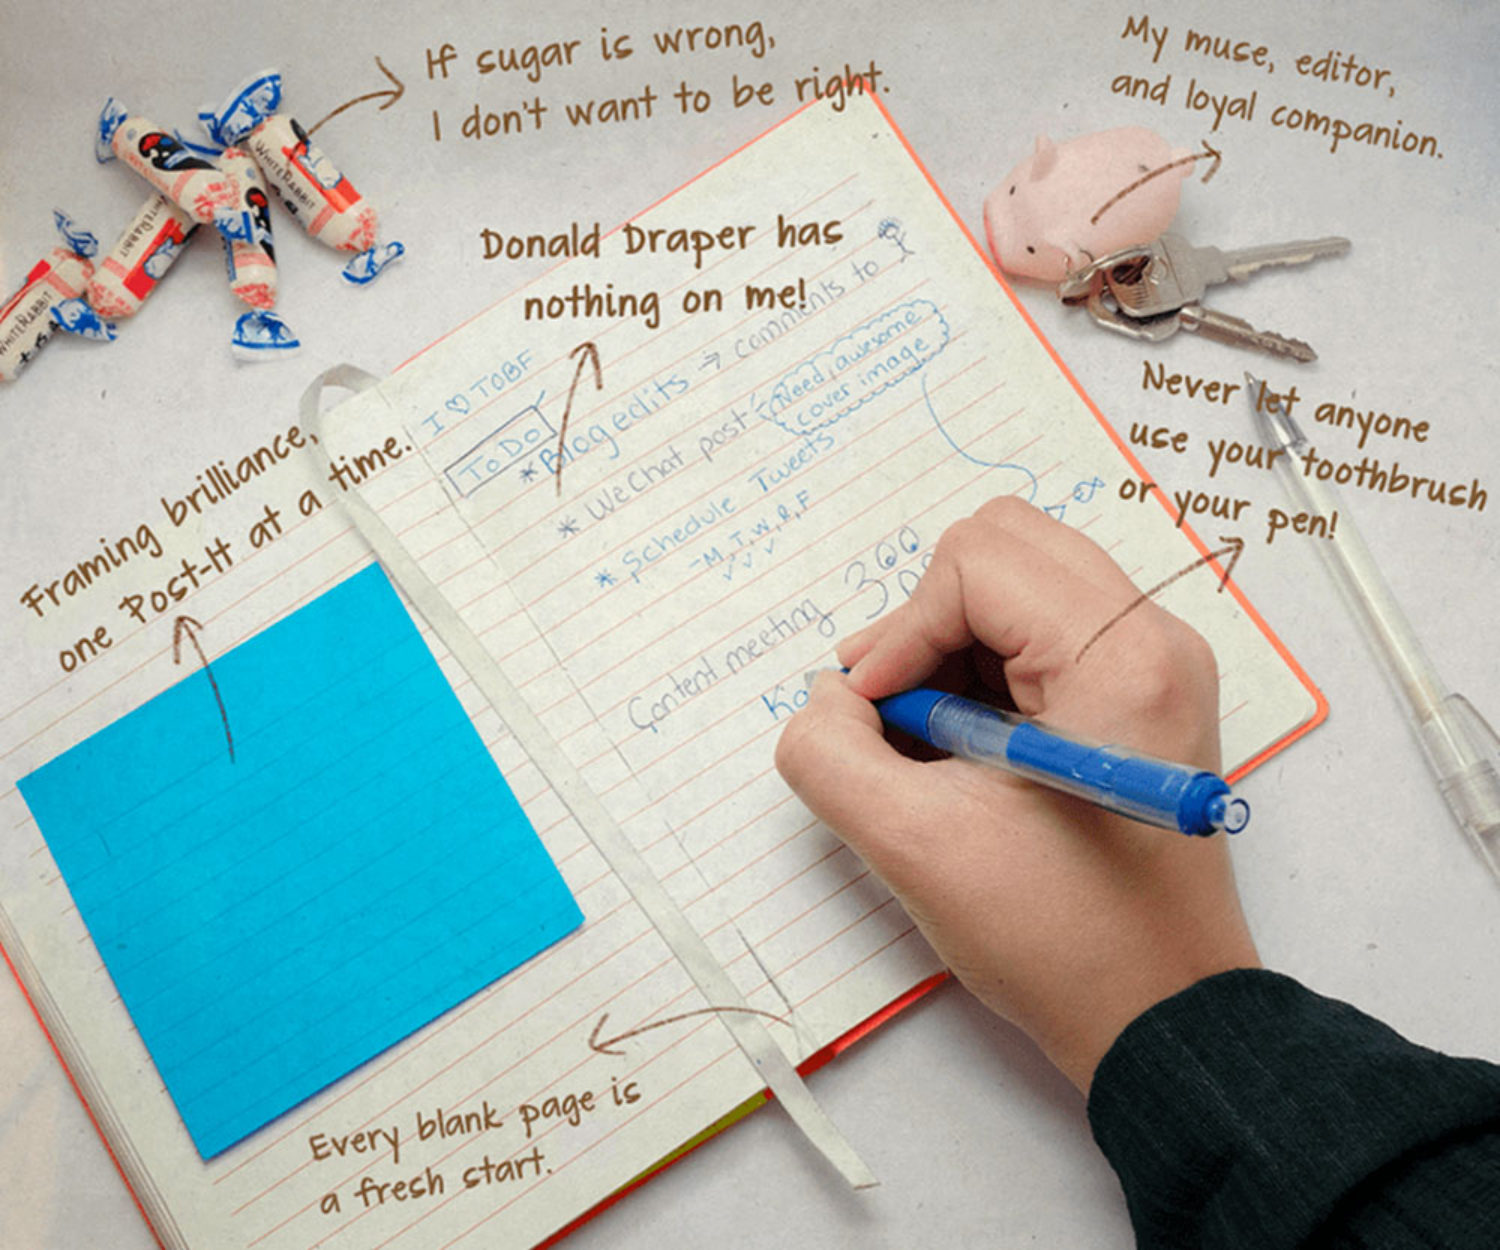 If sugar is wrong,
I don't want to be right.
My muse, editor,
and loyal companion.
WHITE RABBIT
WHITE RABBIT
WHITE RABBIT
Donald Draper has
nothing on me!
Never let anyone
use your toothbrush
or your pen!
Framing brilliance,
one Post-It at a time.
I ♡ TOBF
To Do
* Blog edits → comments to
* WeChat post
Need awesome
cover image
* Schedule Tweets
- M, T, W, R, F
Content meeting 300
Every blank page is
a fresh start.